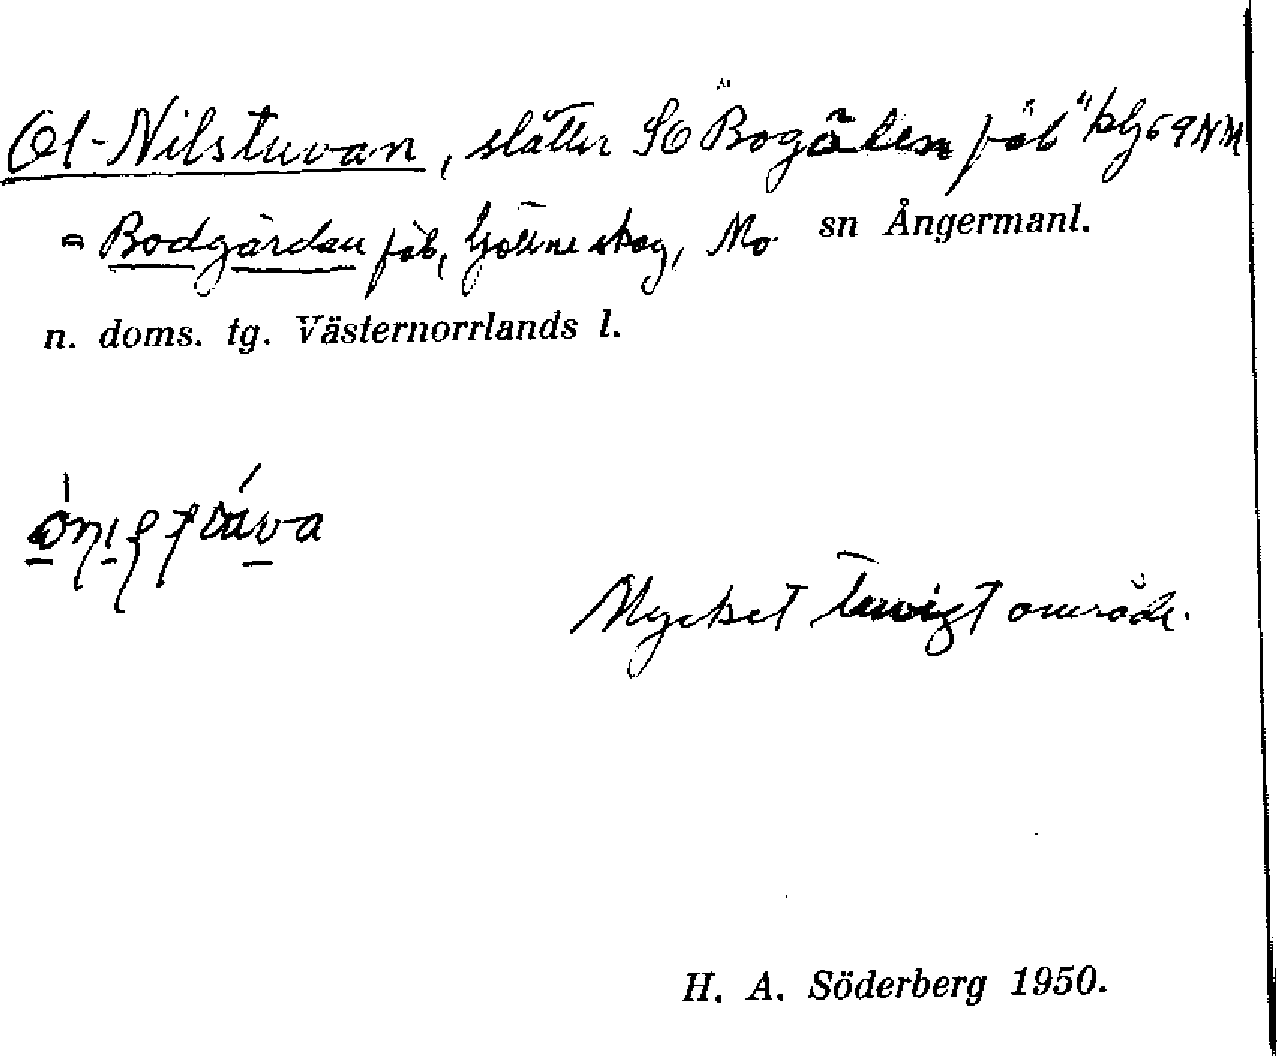 Ol-Nilstuvan, slåtter SO "Bogålen fäb"
= Bodgården fäb, Gottne skog, Mo sn Ångermanl.
n. doms. tg. Västernorrlands l.
Mycket tuvigt område.
H. A. Söderberg 1950.